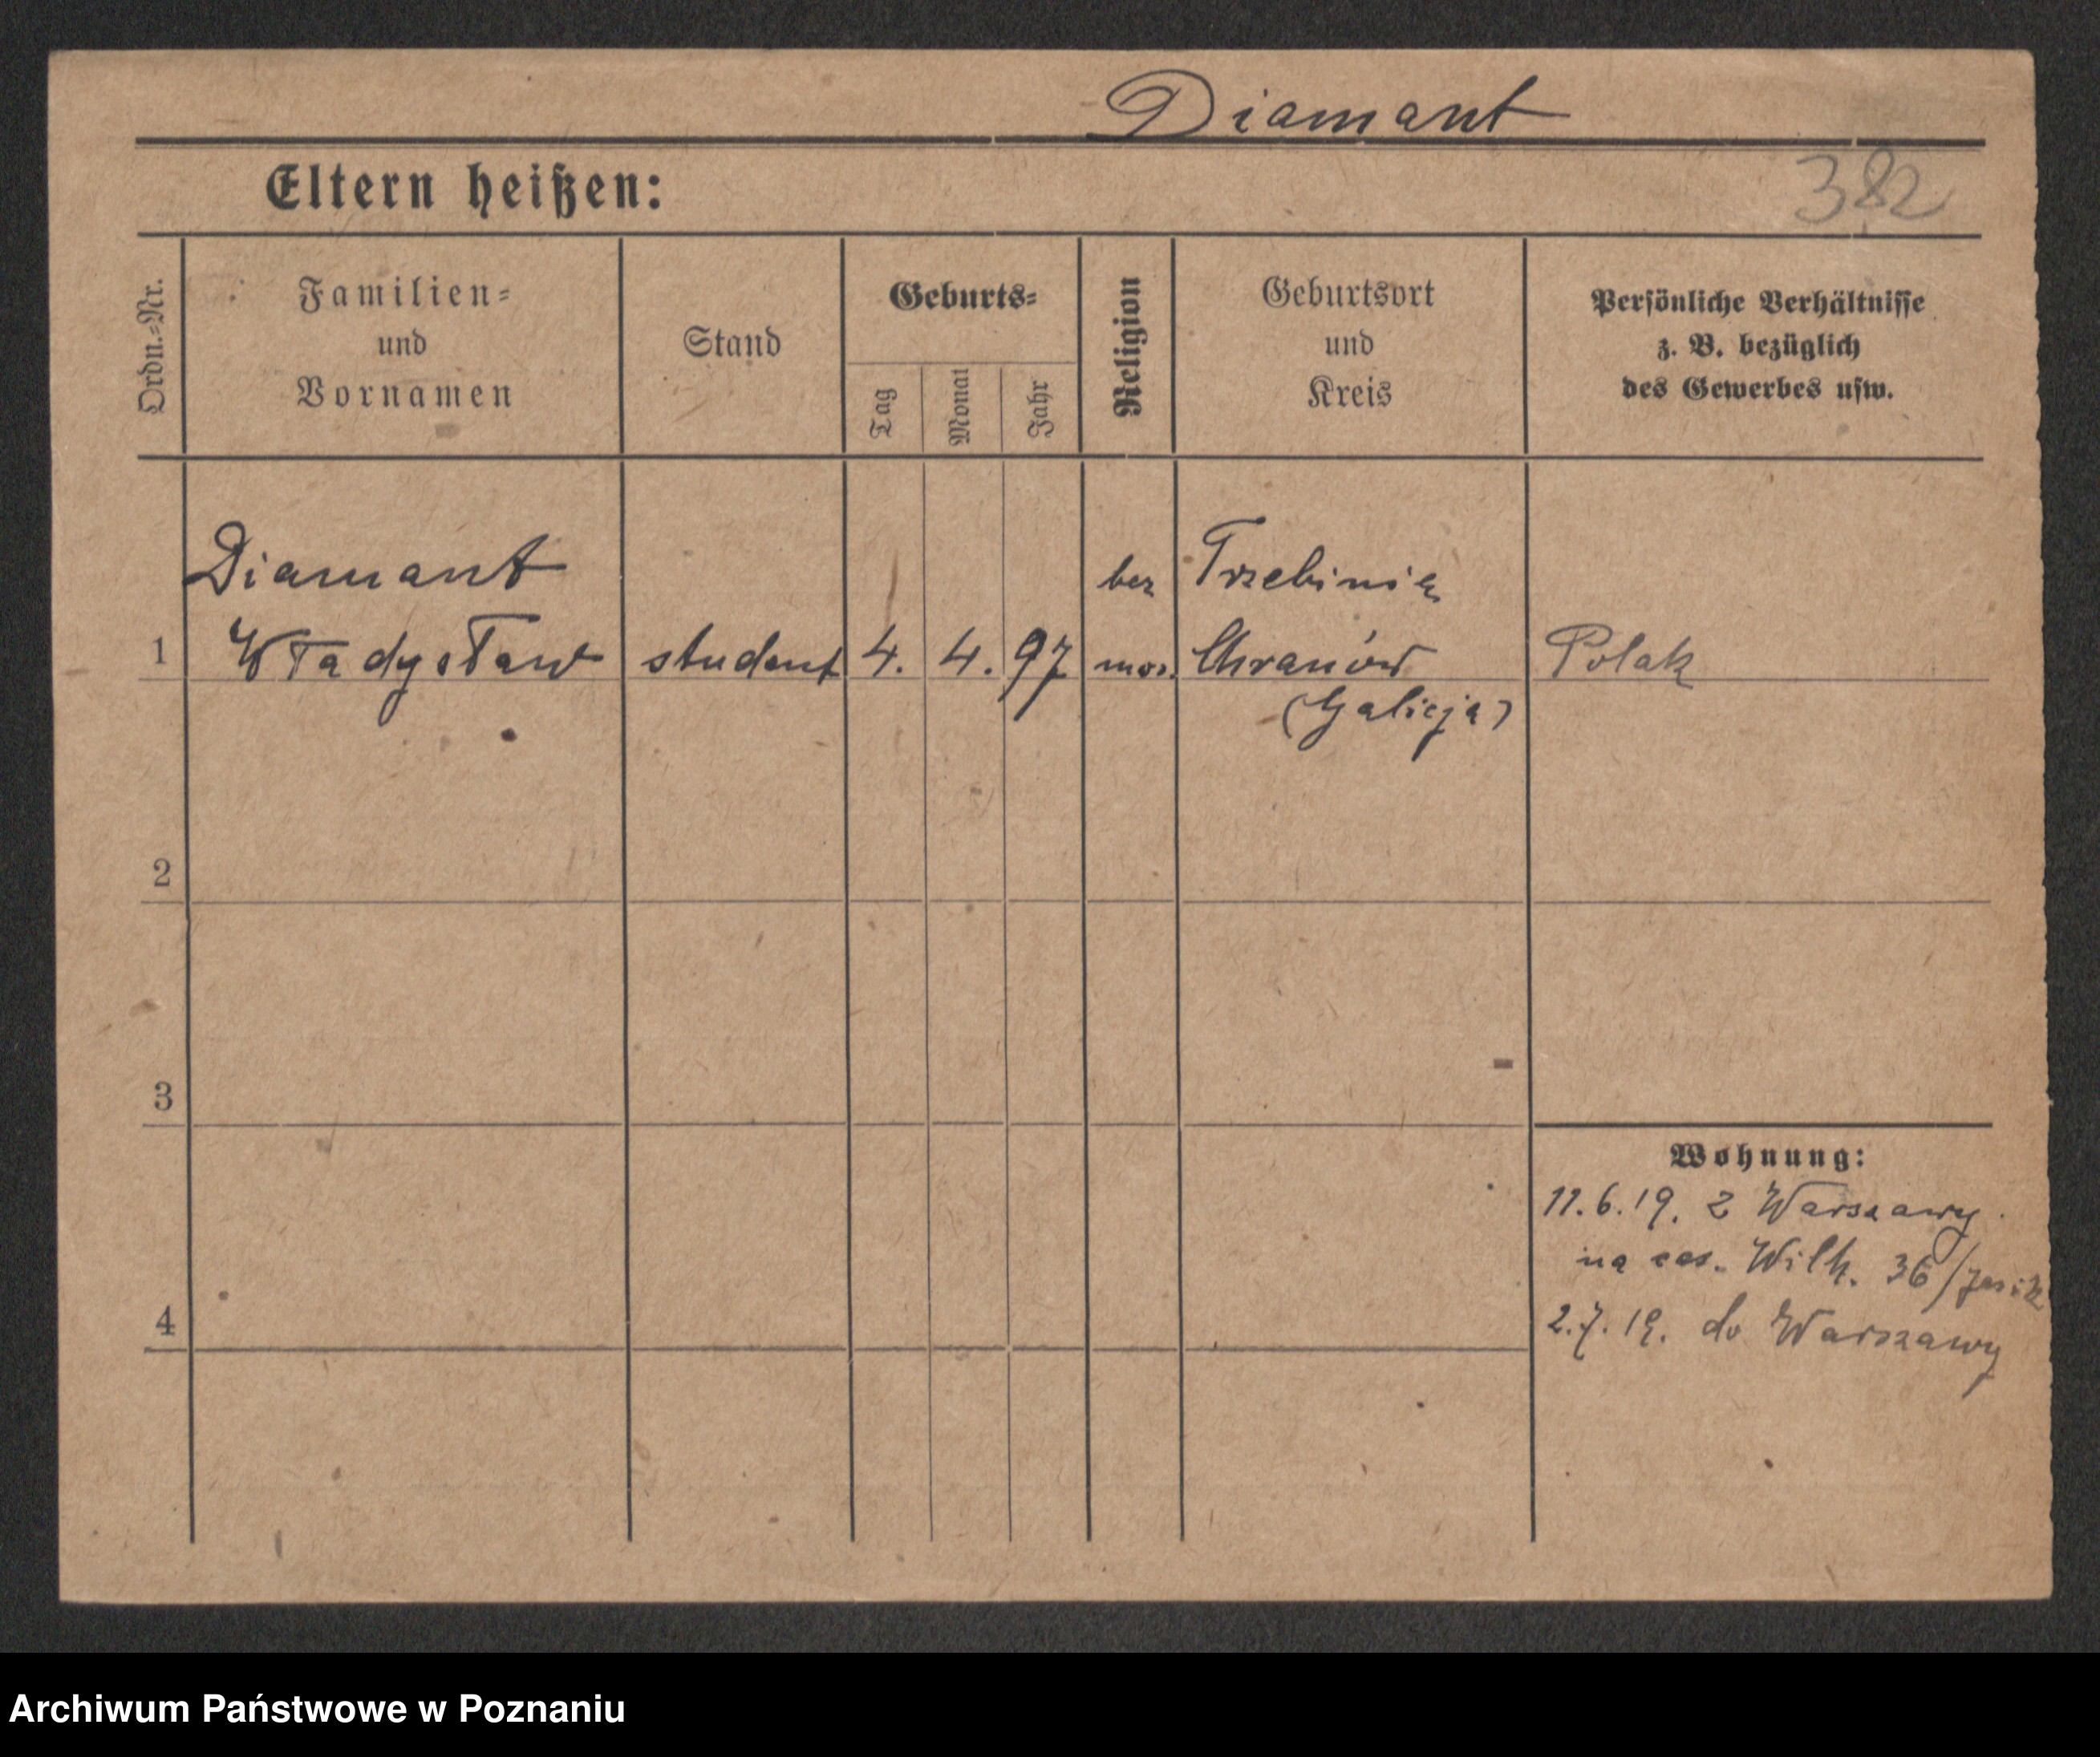 Diamant
Eltern heißen:
382
Ordn.=Nr.
Familien=
und
Vornamen
Stand
Geburts=
Tag
Monat
Jahr
Religion
Geburtsort
und
Kreis
Persönliche Verhältnisse
z. B. bezüglich
des Gewerbes usw.
Diamant
bez
Trzebinia
1 Władysław student 4. 4. 97 Chranów Polak
(Galicja)
2
3
Wohnung:
11.6.19. z Warszawy
na ces. Wilh. 36/
4
2.7.19. do Warszawy
Archiwum Państwowe w Poznaniu